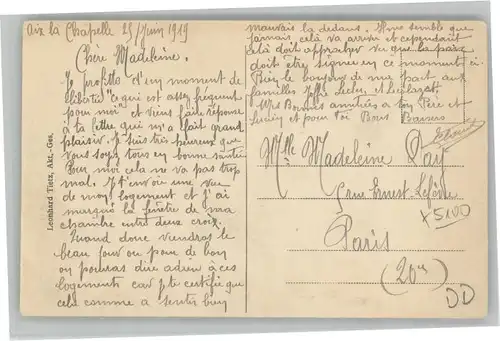 Aix la Chapelle 25/Juin/1919
Chère Madeleine.
Je profitte d'un moment de
liberté "ce qui est assez fréquent
pour moi" et vous fais réponse
à ta lettre qui m'a fait grand
plaisir. Je suis très heureux que
vous soyez tous en bonne santé
Pour moi cela ne va pas trop
mal. Je t'envoie une vue
de mon logement et j'ai
marqué la fenêtre de ma
chambre entre deux croix.
Quand donc viendras le
beau jour ou pour de bon
on pourras dire adieu à ces
logements car je te certifie que
cela comme a sentir bien
mauvais la dedans. Il me semble que
jamais cela va arriver et cependant
cela doit approcher vu que la paix
doit être signée en ce moment ci
Bien le bonjour de ma part aux
familles
Mes Bonnes amitiés a ton Père et
et pour toi Bons Baisers
Leonhard Tietz, Akt.-Ges.
Mlle Madeleine
rue Ernest-Lefèvre
x 5100
Paris
(20e)
DD